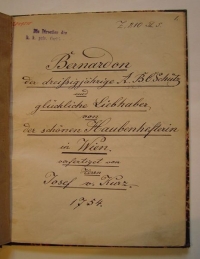 Bernardon
der dreißigjährige A.B.C. Schütz
und
glückliche Liebhaber,
von
der schönen Haubenhefterin
in Wien.
verfertiget von
Josef v. Kurz.
1754.